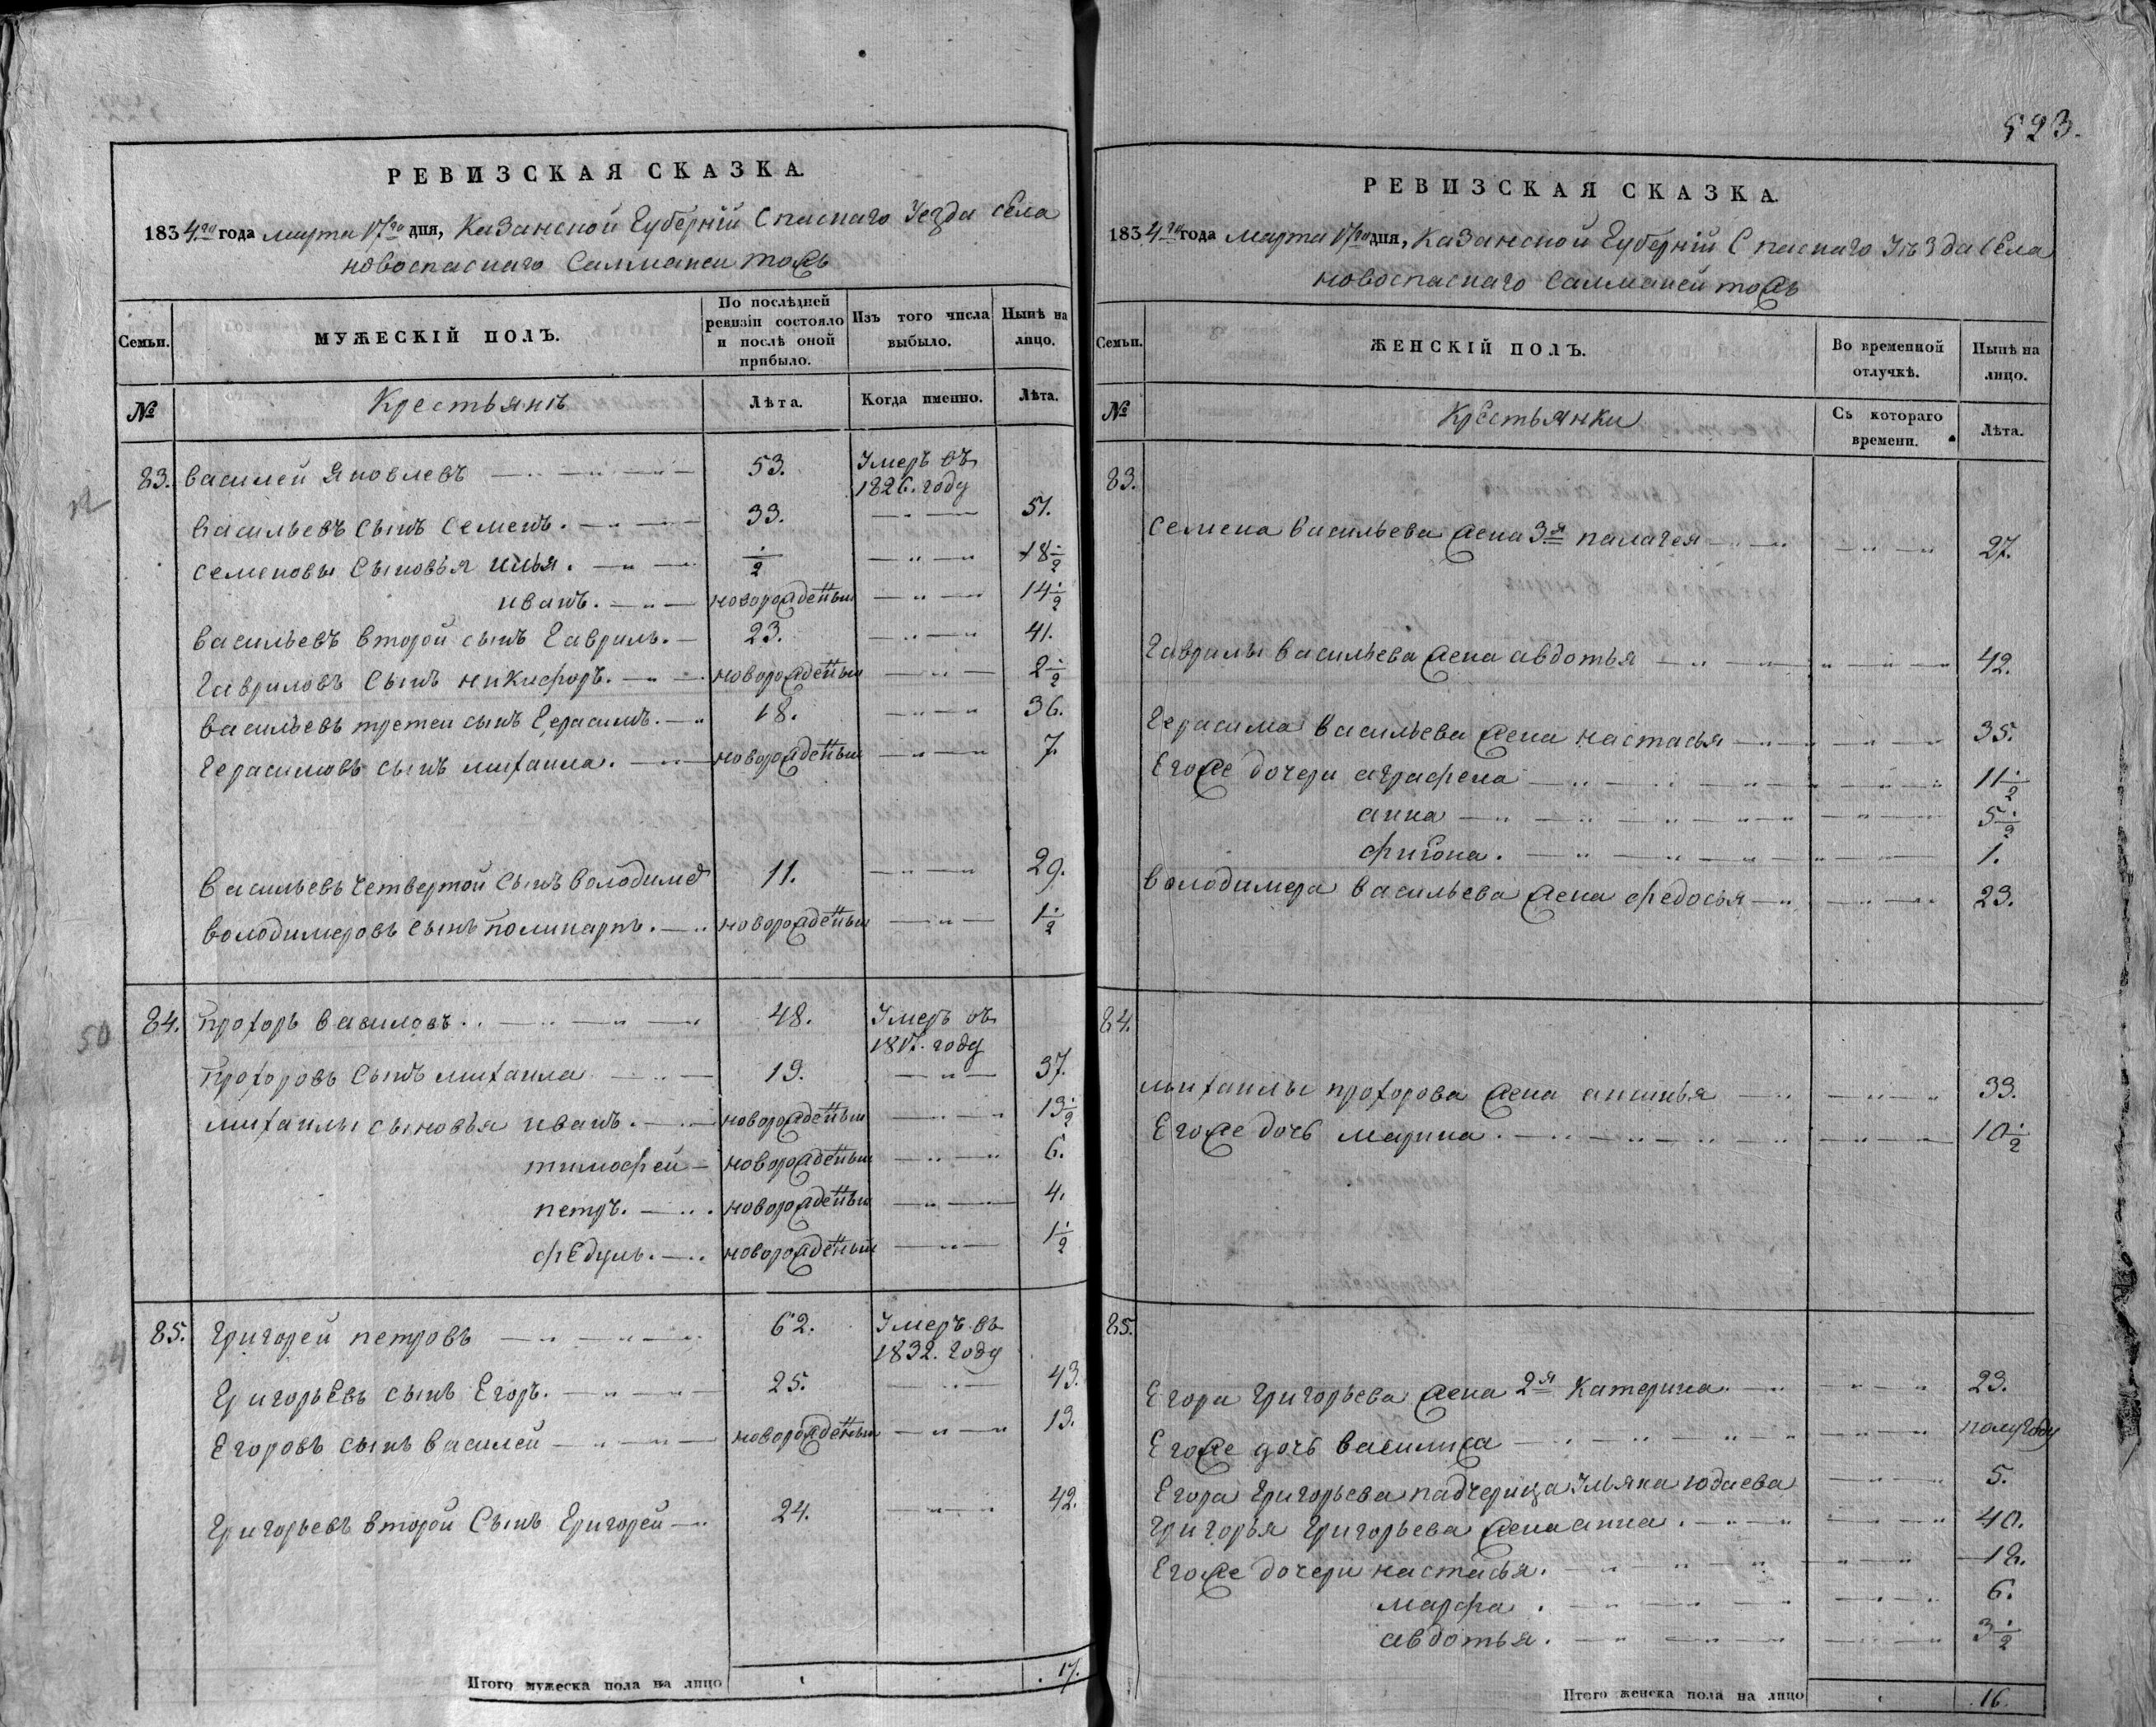 523.
РЕВИЗСКАЯ СКАЗКА.
1834го года марта 17го дня, Казанской Губерніи Спаскаго Уезда села
новоспаскаго Салманы тожъ
Семьи. МУЖЕСКІЙ ПОЛЪ. По послѣдней ревизіи состояло и послѣ оной прибыло. Изъ того числа выбыло. Нынѣ на лицо.
№ Крестьянъ Лѣта. Когда именно. Лѣта.
83. василей Яковлевъ 53. Умеръ въ 1826. году
васильевъ сынъ Семенъ. 33. 51.
семеновы Сыновья илья. 1/2 18 1/2
иванъ. новорожденный 14 1/2
васильевъ второй сынъ Гаврилъ. 23. 41.
Гавриловъ Сынъ никифоръ. новорожденный 2 1/2
васильевъ третей сынъ Герасимъ. 18. 36.
Герасимовъ сынъ михаила. новорожденный 7.
васильевъ четвертой Сынъ володимер 11. 29.
володимеровъ сынъ поликарпъ. новорожденный 1 1/2
50
84. прохоръ вавиловъ. 48. Умеръ въ 1817. году
прохоровъ Сынъ михаила 19. 37.
михаилы сыновья иванъ. новорожденный 13 1/2
тимофей новорожденный 6.
петръ. новорожденный 4.
фЕдулъ. новорожденный 1 1/2
85. Григорей петровъ 62. Умеръ въ 1832. году
Григорьевъ сынъ Егоръ. 25. 43.
Егоровъ сынъ василей новорожденный 13.
Григорьевъ второй Сынъ Григорей 24. 42.
Итого мужеска пола на лицо 17.
РЕВИЗСКАЯ СКАЗКА.
1834го года марта 17го дня, Казанской Губерніи Спаскаго Уѣзда Села
новоспаскаго Салманы тожъ
Семьи. ЖЕНСКІЙ ПОЛЪ. Во временной отлучкѣ. Нынѣ на лицо.
№ Крестьянки Съ котораго времени. Лѣта.
83.
Семена васильева жена 3я палагея 27.
Гаврилы васильева жена авдотья 42.
Герасима васильева жена настасья 35.
Егоже дочери аграфена 11 1/2
анна 5 1/2
фиѳона. 1.
володимера васильева жена федосья 23.
84.
михаилы прохорова жена аксинья 33.
Егоже дочь марина. 10 1/2
85.
Егора Григорьева жена 2я Катерина. 23.
Егоже дочь василиса полугоду
Егора Григорьева падчерица Ульяна юдаева 5.
Григорья Григорьева жена анна. 40.
Егоже дочери настасья. 18.
марфа. 6.
авдотья. 3 1/2
Итого женска пола на лицо 16.